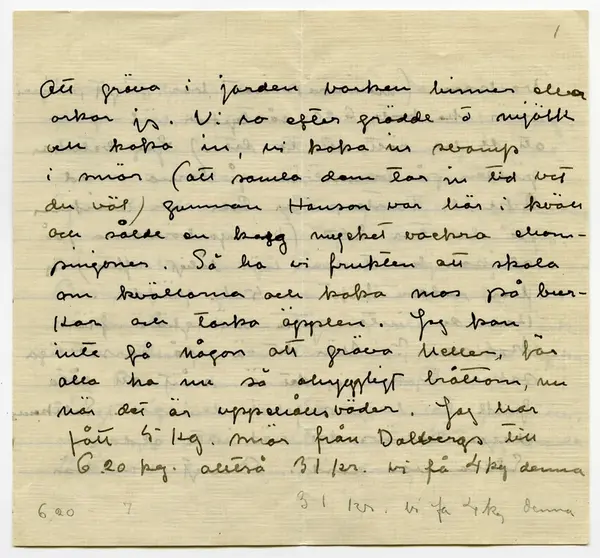 1
Att gräva i jorden varken hinner eller
orkar jg. Vi ro efter grädde o mjölk
och koka in, vi koka in svamp
i smör (att samla dem tar in tid vet
du väl) gumman Hanson var här i kväll
och sålde en korg mycket vackra cham-
pinjoner. Så ha vi frukten att skala
om kvällarna och koka mos på bur-
kar och torka äpplen. Jag kan
inte få någon att gräva heller, för
alla ha nu så ohyggligt bråttom, nu
när det är uppehållsväder. Jag har
fått 5 kg. smör från Dalbergs till
6.20 kg. alltså 31 kr. vi få 4 kg denna
31 kr. vi få 4 kg denna
6 20 7